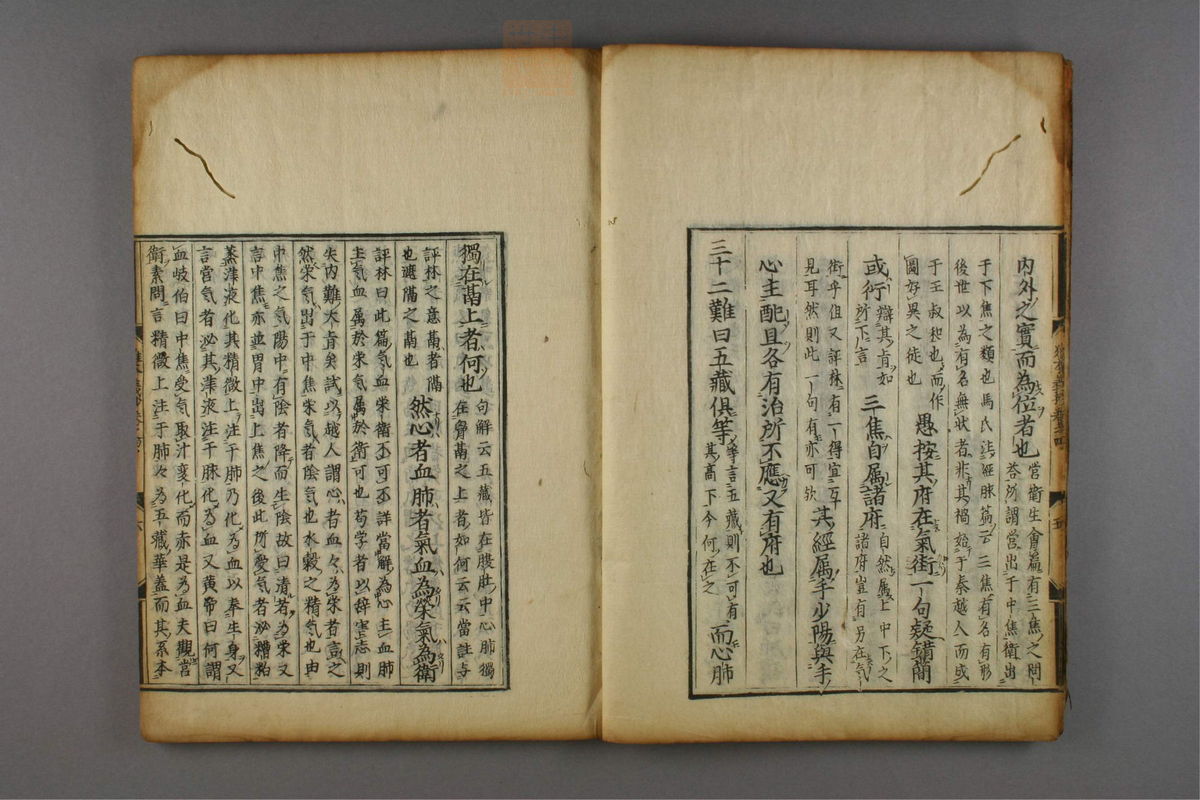 内外之實而為位者也 營衛生會篇有三焦之問
荅所謂営出于中焦衛出
于下焦之類也馬氏註経脉萹云三焦有名有形
後世以為有名無狀者非其禍始于秦越人而成
于王叔和也而作
圖好異之徒也 愚按其府在氣街一句疑錯簡
或衍 辯其肯如
所下言 三焦自属諸府 自然属上中下之
諸府豈有另在氣
街乎但又評林有一得宜互
見耳然則此一句有亦可欤 其經属手少陽與手
心主配且各有治所不應又有府也
三十二難曰五藏俱等 等言五藏則不可有
其高下今何在之 而心肺
獨在鬲上者何也 句解云五藏皆在腹肚中心肺獨
在胷鬲之上者如何云云當註与
評林之意鬲者隔
也遮隔之鬲也 然心者血肺者氣血為榮氣為衛
評林曰此篇氣血栄衛不可不詳當解為心主血肺
主氣血属於栄氣属於衛可也苟学者以辞害志則
失内難大肯矣試以越人謂心者血々為栄者言之
然栄氣出于中焦栄氣者陰氣也水穀之精氣也由
中焦之氣陽中有陰者降而生陰故曰清者為栄又
言中焦亦並胃中出上焦之後此所受氣者泌糟粕
蒸津液化其精微上注于肺乃化為血以奉生身又
言营氣者泌其津液注于脉化為血又黄帝曰何謂
血岐伯曰中焦受氣取汁変化而赤是為血夫觀营
衛素問言精微上注于肺々為五藏華盖而其系本